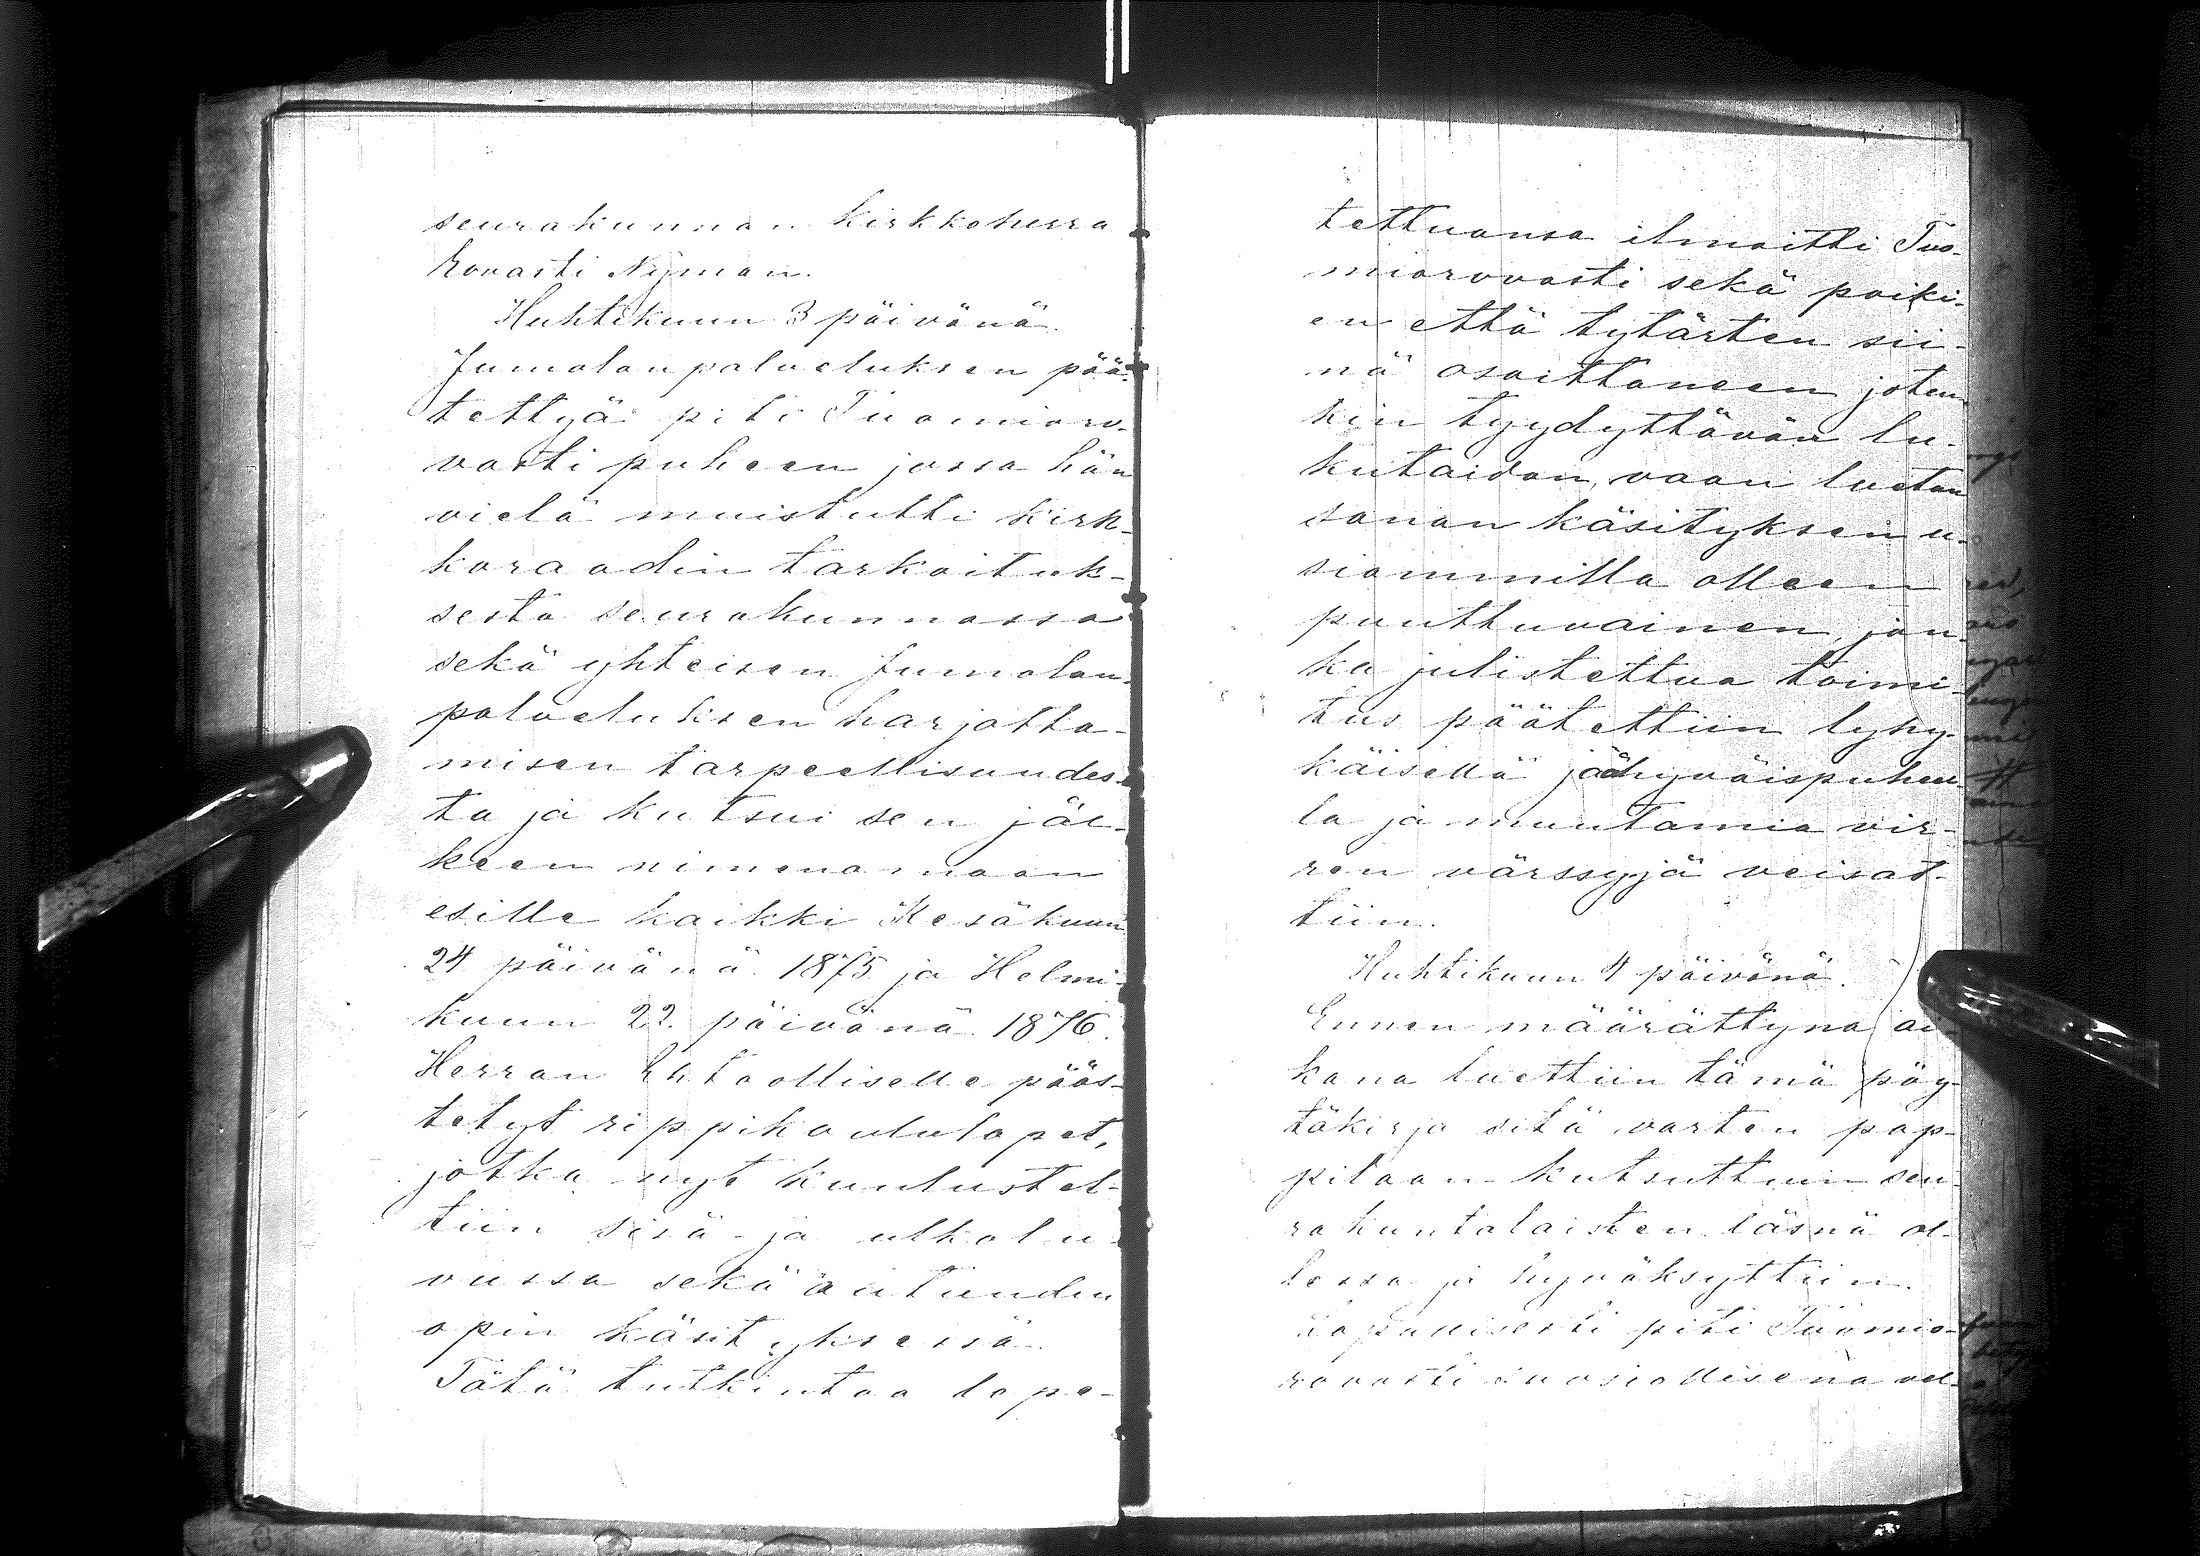 seurakunnan kirkkoherra
Rovasti Nyman.
Huhtikuun 3 päivänä.
Jumalanpalveluksen pää-
tettyä piti Tuomioro-
vasti puheen jossa hän
vielä muistutti kirk-
koraadin tarkoituk-
sesta seurakunnassa
sekä yhteisen Jumalan-
palveluksen harjotta-
misen tarpeellisuudes-
ta ja kutsui sen jäl-
keen nimenomaan
esille kaikki Kesäkuun
24 päivänä 1875 ja Helmi-
kuun 22. päivänä 1876.
Herran Ehtoolliselle pääs-
tetyt rippikoululapet,
jotka nyt kuulustel-
tiin sisä- ja ulkolu-
vussa sekä autuuden
opin käsityksessä.
Tätä tutkintoa lope-
tettuansa ilmoitti Tuo-
miorovasti sekä poiki-
en että tytärten sii-
nä osoittaneen joten
kin tyydyttävän lu-
kutaidon, vaan luetun
sanan käsityksen u-
siammilla olleen
puuttuvainen, jon-
ka julistettua toimi-
tus päätettiin lyhy-
käisellä jäähyväispuheel-
la ja muutamia vir-
ren värssyjä veisat-
tiin.
Huhtikuun 4 päivänä.
Ennen määrättynä ai-
kana luettiin tämä pöy-
täkirja sitä varten pap-
pilaan kutsuttuin seu-
rakuntalaisten läsnä ol-
lessa ja hyväksyttiin.
Lopullisesti piti Tuomio-
rovasti suosiollisena vel-